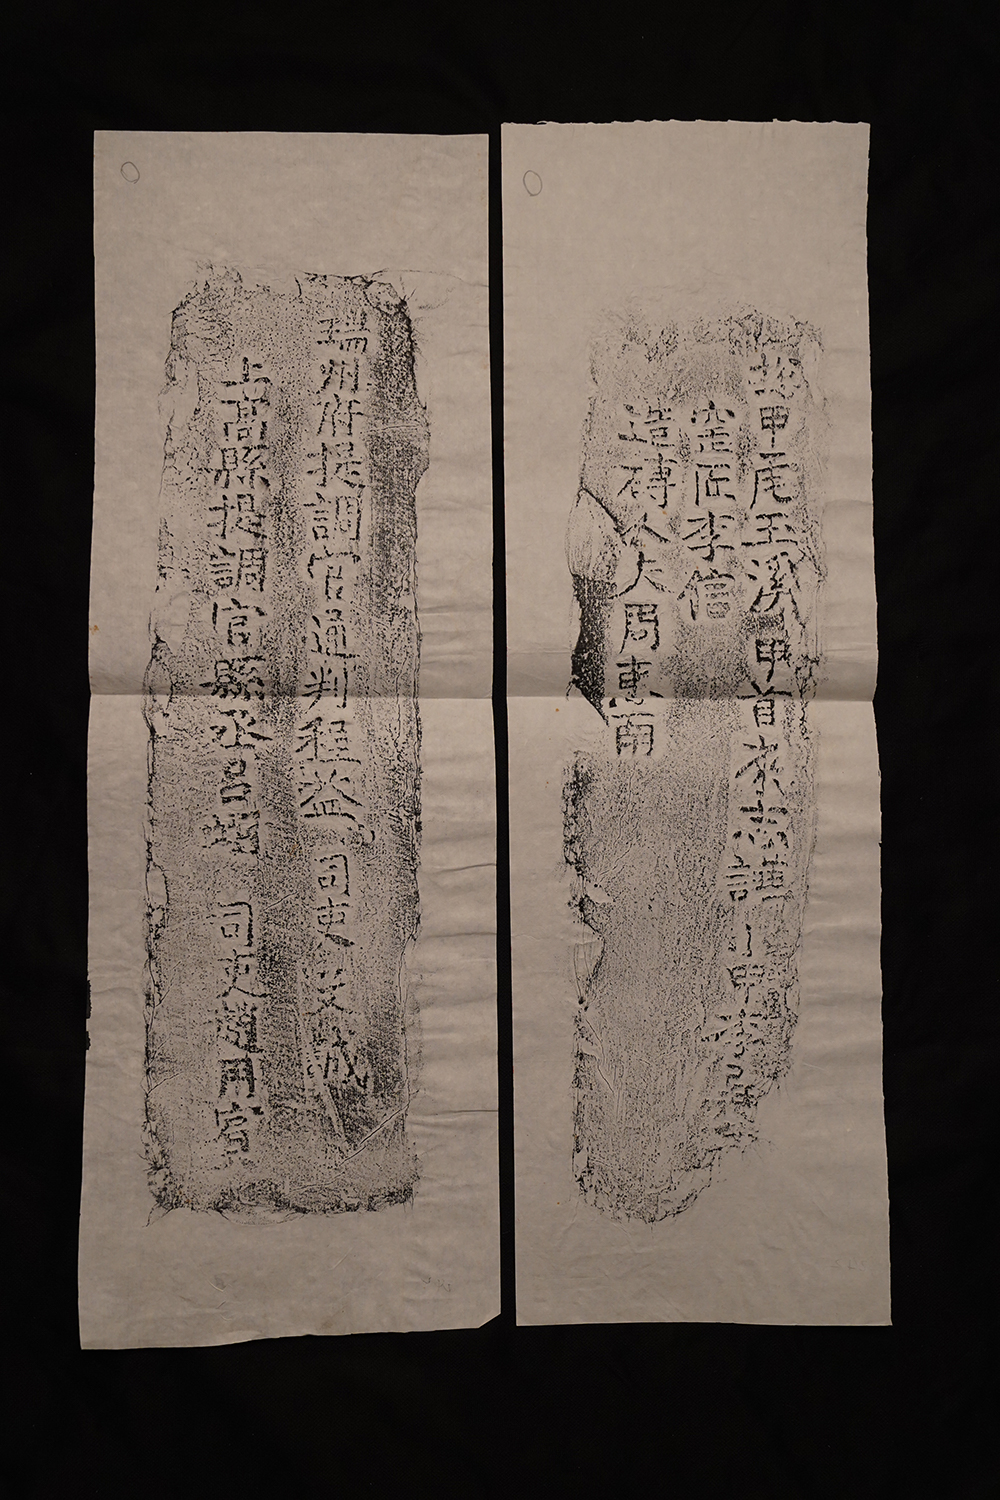 瑞州府提調官通判程益 司吏艾誠
上高縣提調官縣丞呂 司吏 用賓
總甲 玉溪 甲首 志謹 小甲李
窑匠李信
造磚人夫周東南